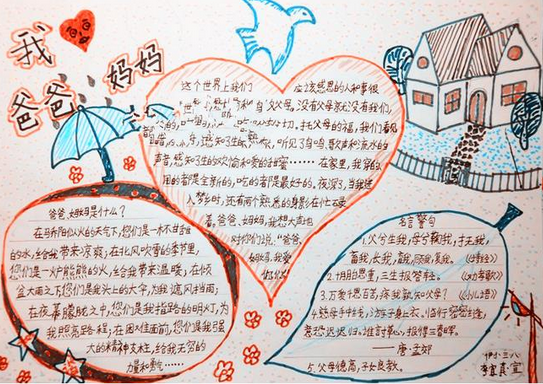 我
爸爸
妈妈
这个世界上我们 应该感恩的人和事很
父母,没有父母就没有我们,
托父母的福,我们看见
感知了生 听见了鸟鸣、歌声和流水的
声音,感知了生的欢愉和爱的甜蜜……在家里,我穿的
用的都是全新的,吃的都是最好的。夜深了,当我进
入梦乡时,还有两个熟悉的身影在忙碌
着。爸爸、妈妈,我想大声地
对你们说:“爸爸、
妈妈,我爱
你们!”
爸爸、妈妈是什么?
在骄阳似火的天气下,您们是一杯甘甜
的水,给我带来凉爽;在北风吹雪的季节里,
您们是一炉熊熊的火,给我带来温暖;在倾
盆大雨之下,您们是我头上的伞,为我遮风挡雨;
在夜幕朦胧之中,您们是我指路的明灯,为
我照亮路程;在困难面前,您们是我强
大的精神支柱,给我无穷的
力量和勇气……
名言警句
1.父兮生我,母兮鞠我,抚我,
畜我,长我,育我,顾我,复我。
2.十月胎恩重,三生报答轻。《劝孝歌》
3.万爱千恩百苦,疼我孰知父母?《小儿语》
4.慈母手中线,游子身上衣。临行密密缝,
意恐迟迟归。谁言寸草心,报得三春晖。
——唐·孟郊
5.父母德高,子女良教。